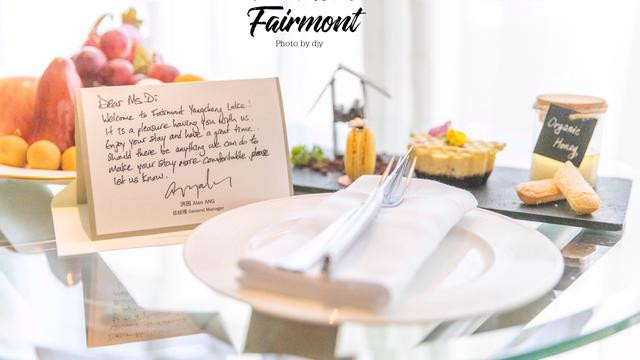 Fairmont
Photo by djy
Dear Ms. Di
Welcome to Fairmont Yangcheng Lake!
It is a pleasure having you with us.
Enjoy your stay and have a great time.
Should there be anything we can do to
make your stay more comfortable, please
let us know.
洪园 Alan ANG
总经理 General Manager
Organic
Honey